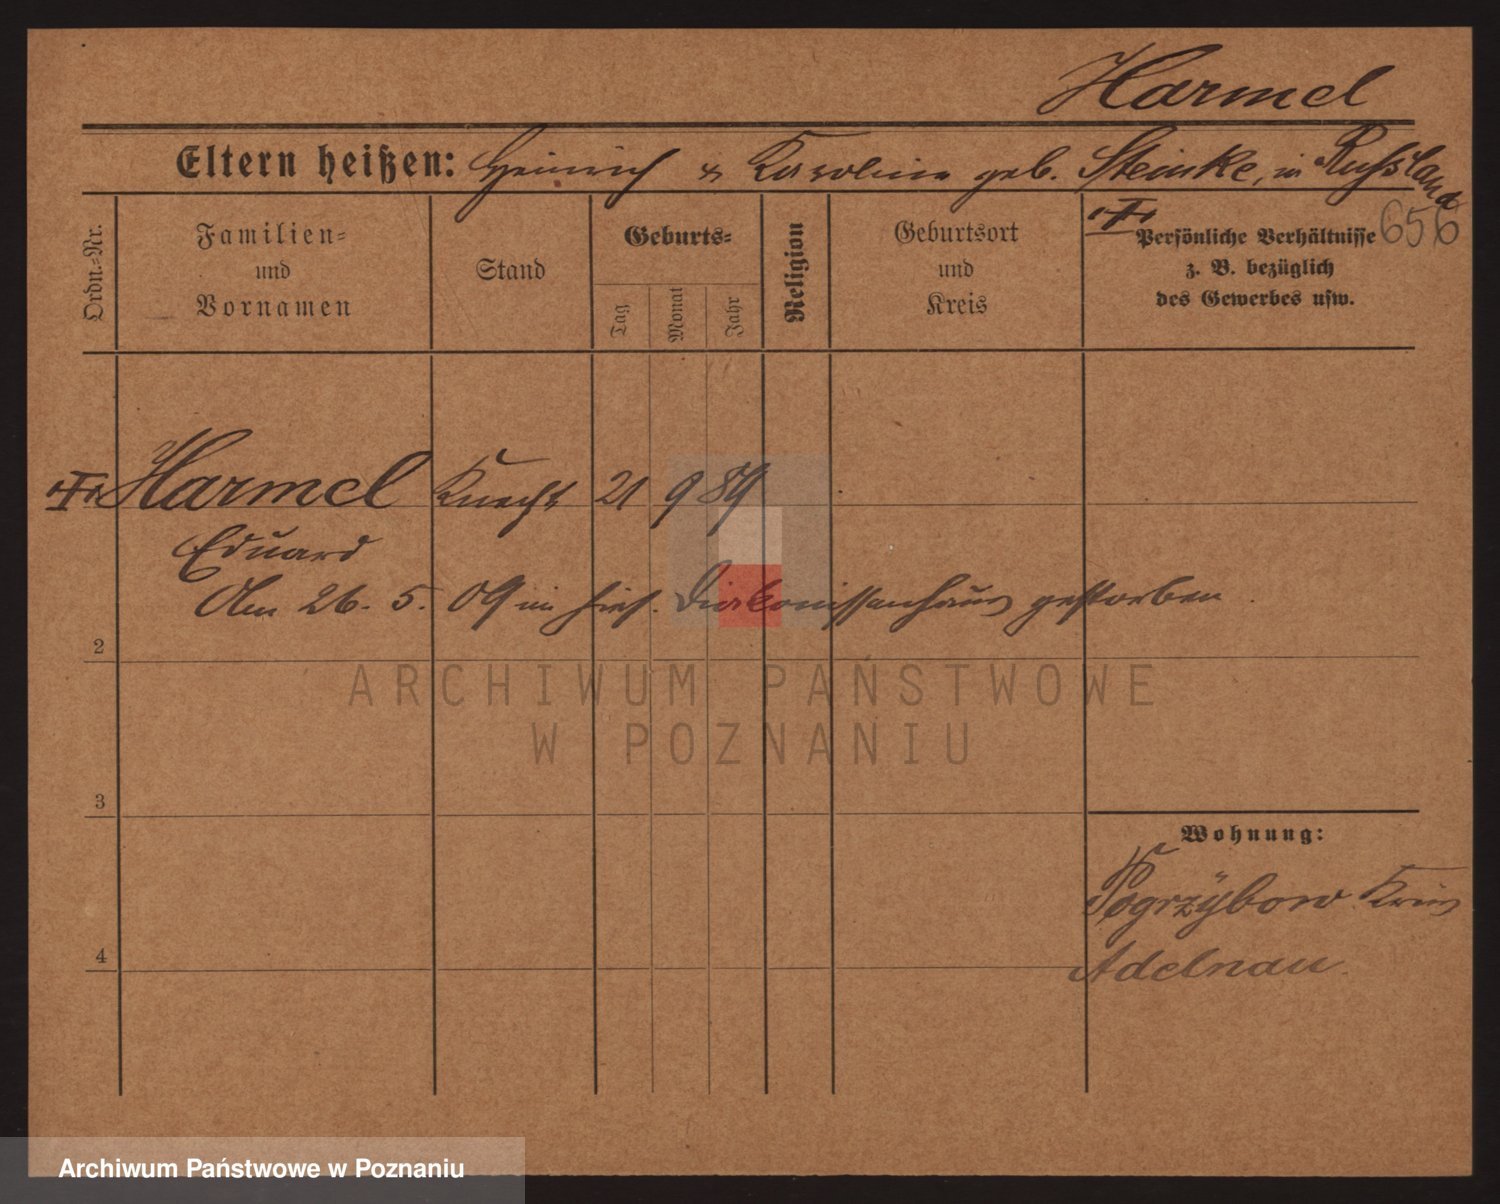 Harmel
Eltern heißen: Heinrich & Karoline geb. Steinke, in Russland
656
Ordn.=Nr.
Familien=
und
Vornamen
Stand
Geburts=
Tag
Monat
Jahr
Religion
Geburtsort
und
Kreis
Persönliche Verhältnisse
z. B. bezüglich
des Gewerbes usw.
Harmel Knecht 21 9 89
Eduard
Am 26. 5. 09 im hies. Diakonissenhaus gestorben.
2
ARCHIWUM PAŃSTWOWE
W POZNANIU
3
Wohnung:
Pogrzybow Kreis
4
Adelnau.
Archiwum Państwowe w Poznaniu